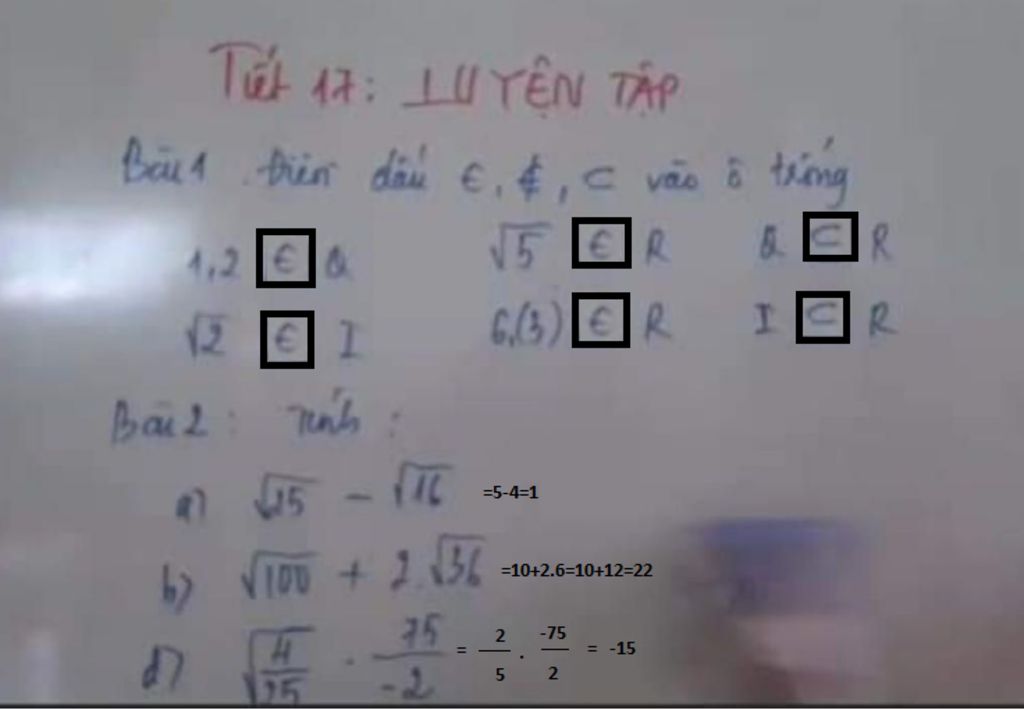 Tiết 17: LUYỆN TẬP
Bài 1. Điền dấu ∈, ∉, ⊂ vào ô trống
1,2 ∈ Q √5 ∈ R Q ⊂ R
√2 ∈ I 6,(3) ∈ R I ⊂ R
Bài 2: Tính:
a) √25 - √16 =5-4=1
b) √100 + 2.√36 =10+2.6=10+12=22
d) √(4/25) . 75/-2 = 2/5 . -75/2 = -15